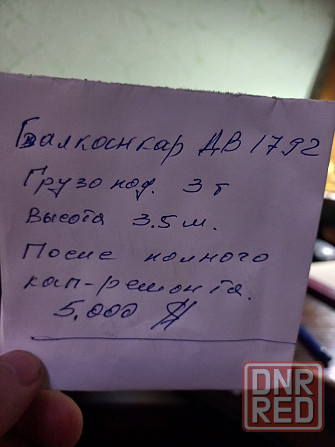 Балкоснкар ДВ 1792
Грузопод. 3 т
Высота 3.5 м.
После полного
кап-ремонта.
5.000 $
DNR
RED